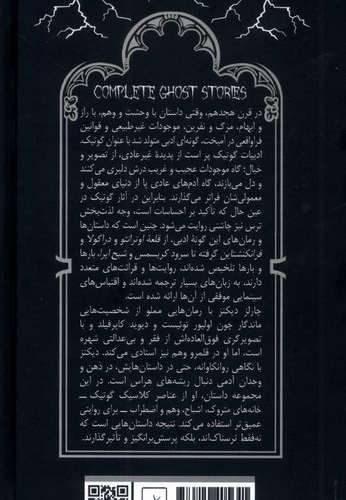 COMPLETE GHOST STORIES
در قرن هجدهم، وقتی داستان با وحشت و وهم، با راز
و ابهام، مرگ و نفرین، موجودات غیرطبیعی و قوانین
فراواقعی در آمیخت، گونه‌ای ادبی متولد شد با عنوان گوتیک.
ادبیات گوتیک پر است از پدیدهٔ غیرعادی، از تصویر و
خیال؛ گاه موجودات عجیب و غریب درش دلبری می‌کنند
و دل می‌بازند، گاه آدم‌های عادی پا از دنیای معقول و
معمولی‌شان فراتر می‌گذارند. بنابراین در آثار گوتیک در
عین حال که تأکید بر احساسات است، وجه لذت‌بخش
ترس نیز چاشنی روایت می‌شود. چنین است که داستان‌ها
و رمان‌های این گونهٔ ادبی، از قلعهٔ اوترانتو و دراکولا و
فرانکنشتاین گرفته تا سرود کریسمس و شبح اپرا، بارها
و بارها تلخیص شده‌اند، روایت‌ها و قرائت‌های متعدد
دارند، به زبان‌های بسیار ترجمه شده‌اند و اقتباس‌های
سینمایی موفقی از آن‌ها ارائه شده است.
چارلز دیکنز با رمان‌هایی مملو از شخصیت‌هایی
ماندگار چون اولیور توئیست و دیوید کاپرفیلد و با
تصویرگری فوق‌العاده‌اش از فقر و بی‌عدالتی شهره
است. اما او در قلمرو وهم نیز استادی می‌کند. دیکنز
با نگاهی روانکاوانه، حتی در داستان‌هایش، در ذهن و
وجدان آدمی دنبال ریشه‌های هراس است. در این
مجموعه داستان، او از عناصر کلاسیک گوتیک ــ
خانه‌های متروک، اشباح، وهم و اضطراب ــ برای روایتی
عمیق‌تر استفاده می‌کند. نتیجه داستان‌هایی است که
نه‌فقط ترسناک‌اند، بلکه پرسش‌برانگیز و تأثیرگذارند.